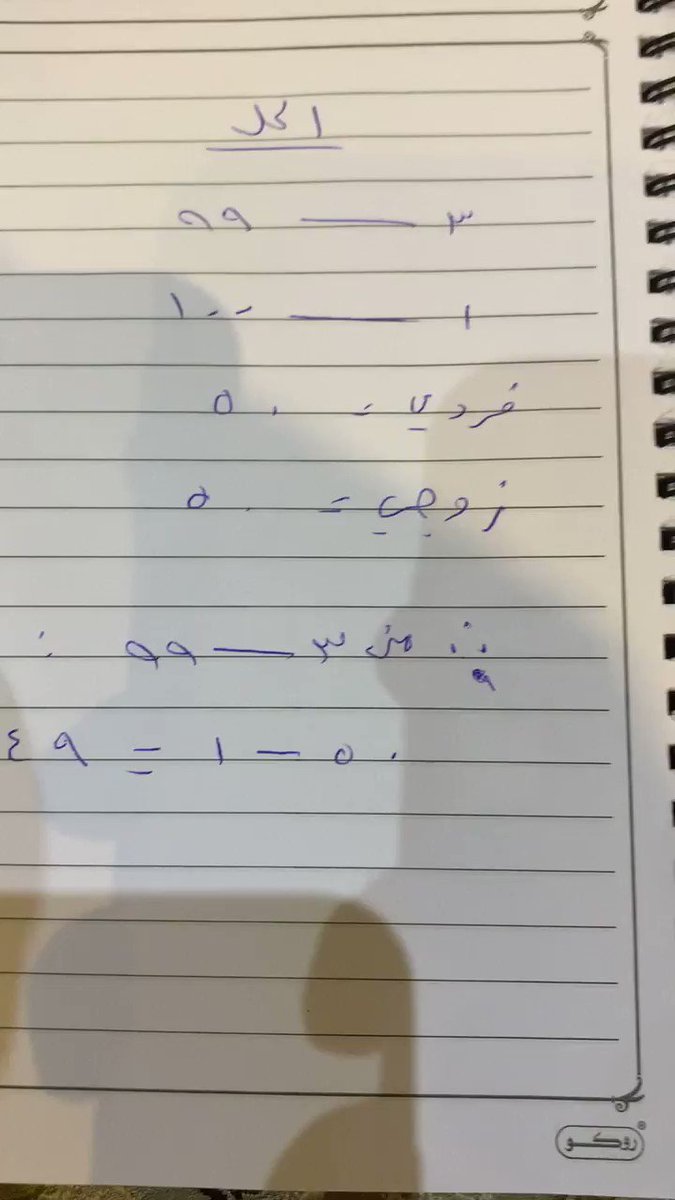 الحل
٣ — ٩٩
١ — ١٠٠
فردي = ٥٠
زوجي = ٥٠
∴ من ٣ — ٩٩ :
٥٠ — ١ = ٤٩
روكو